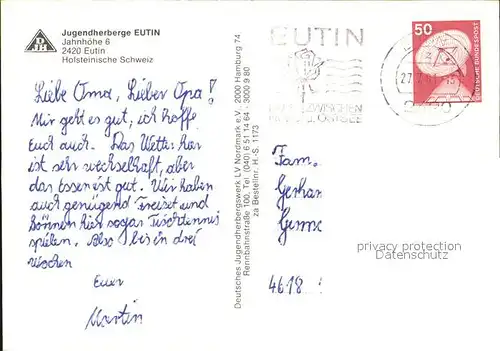 Jugendherberge EUTIN
Jahnhöhe 6
2420 Eutin
Holsteinische Schweiz
DJH
Liebe Oma, Lieber Opa!
Mir geht es gut, ich hoffe
Euch auch. Das Wetter hier
ist sehr wechselhaft, aber
das Essen ist gut. Wir haben
auch genügend Freizeit und
können hier sogar Tischtennis
spielen. Also bis in drei
Wochen
Euer
Martin
Deutsches Jugendherbergswerk LV Nordmark e.V. 2000 Hamburg 74
Rennbahnstraße 100, Tel. (040) 6 51 14 64 · 3000 9 80
za Bestellnr. H.-S. 1173
EUTIN
ZWISCHEN
OSTSEE
50
DEUTSCHE BUNDESPOST
Fam.
Gerhar
4618
privacy protection
Datenschutz